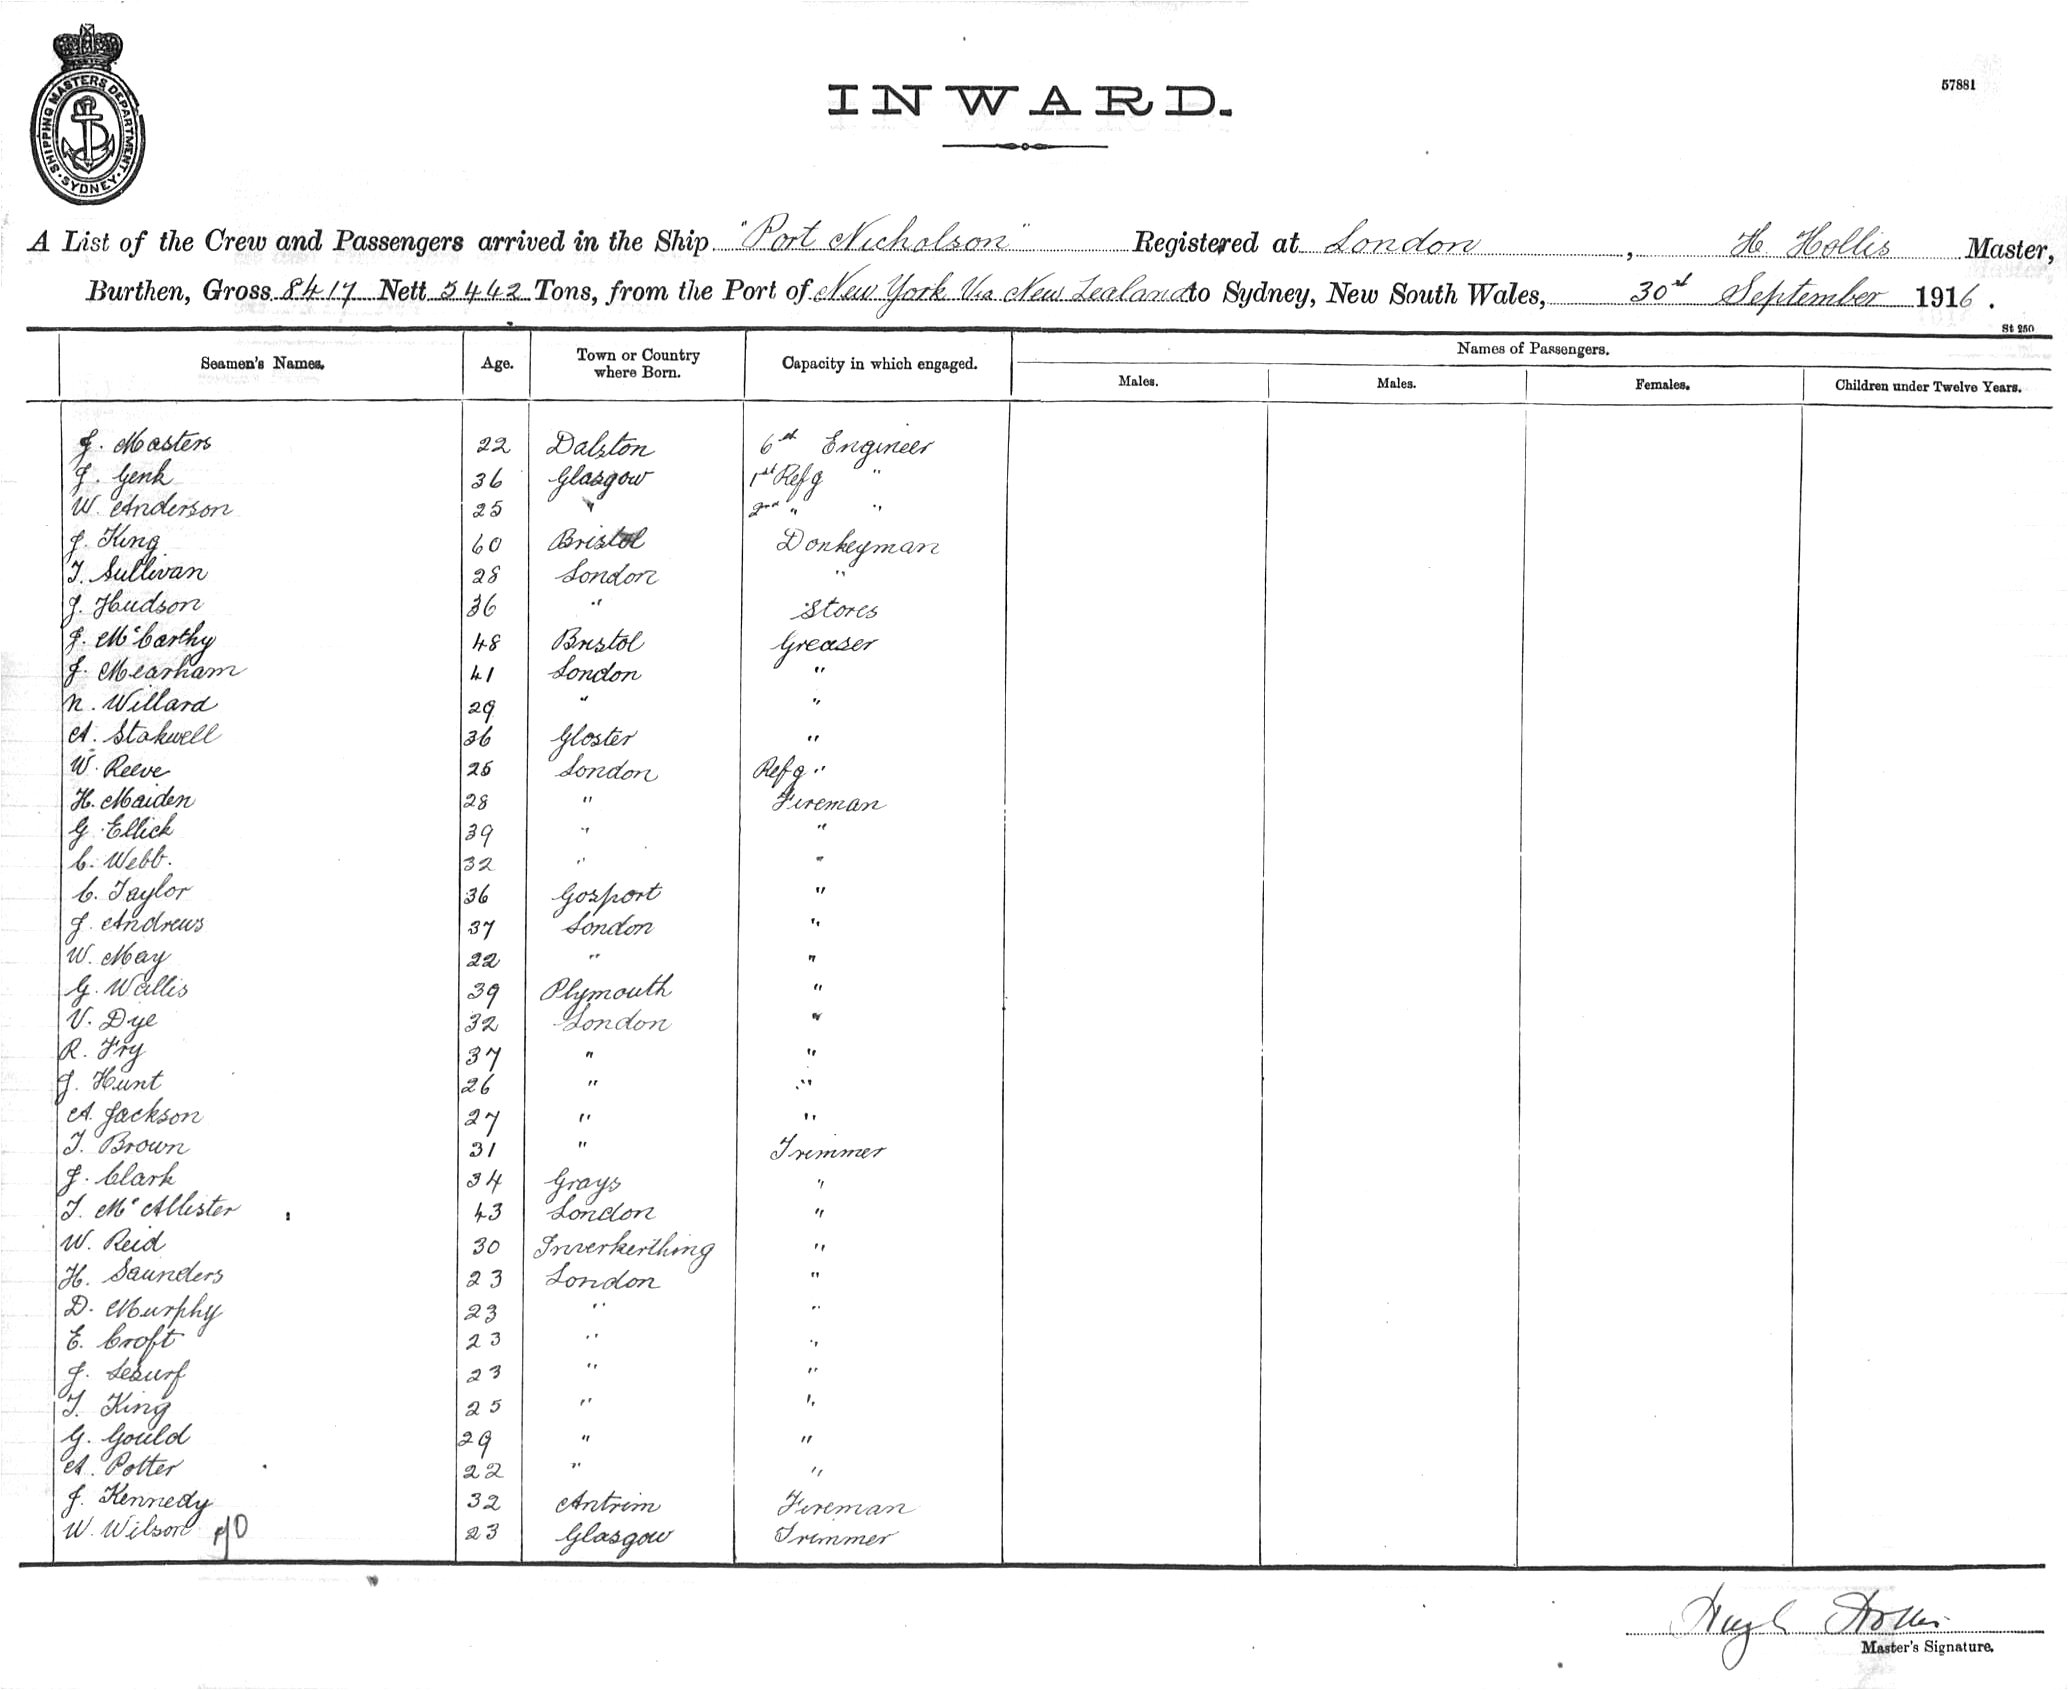 SHIPPING MASTERS DEPARTMENT · SYDNEY ·
INWARD.
57881
A List of the Crew and Passengers arrived in the Ship "Port Nicholson" Registered at London, H. Hollis Master,
Burthen, Gross 8417 Nett 5442 Tons, from the Port of New York Via New Zealand to Sydney, New South Wales, 30th September 1916.
St 250
Seamen's Names. Age. Town or Country where Born. Capacity in which engaged. Names of Passengers.
Males. Males. Females. Children under Twelve Years.
J. Masters 22 Dalston 6th Engineer
J. Genk 36 Glasgow 1st Refg "
W. Anderson 25 " 2nd " "
J. King 60 Bristol Donkeyman
T. Sullivan 28 London "
J. Hudson 36 " Stores
J. McCarthy 48 Bristol Greaser
J. Mearham 41 London "
N. Willard 29 " "
A. Stokwell 36 Gloster "
W. Reeve 25 London Refg "
H. Maiden 28 " Fireman
G. Ellick 39 " "
C. Webb. 32 " "
C. Taylor 36 Gosport "
J. Andrews 37 London "
W. May 22 " "
G. Wallis 39 Plymouth "
V. Dye 32 London "
R. Fry 37 " "
J. Hunt 26 " "
A. Jackson 27 " "
T. Brown 31 " Trimmer
J. Clark 34 Grays "
T. McAllister 43 London "
W. Reid 30 Inverkerthing "
H. Saunders 23 London "
D. Murphy 23 " "
E. Croft 23 " "
J. Lesurf 23 " "
T. King 25 " "
G. Gould 29 " "
A. Potter 22 " "
J. Kennedy 32 Antrim Fireman
W. Wilson 23 Glasgow Trimmer
Hugh Hollis
Master's Signature.